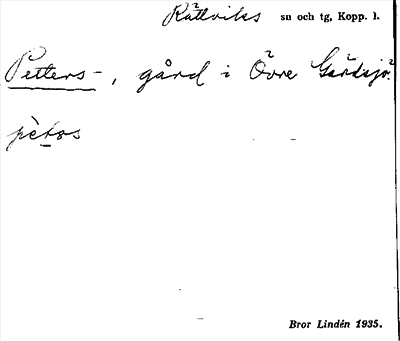 Rättviks sn och tg, Kopp. l.
Petters-, gård i Övre Gärdsjö.
pètos
Bror Lindén 1935.